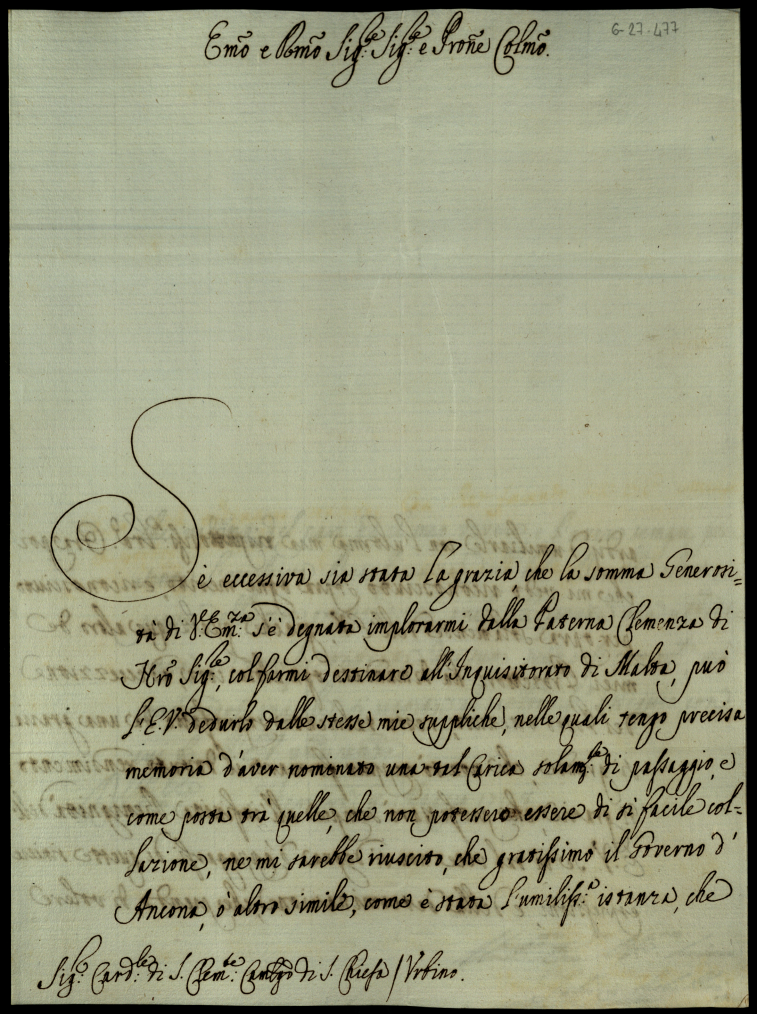 G-27-477
Emo e Rmo Sig.re Sig.re e Prone Colmo.
Sè eccessiva sia stata la grazia, che la somma Generosi=
tà di V. Em.za s'è degnata implorarmi dalla Paterna Clemenza di
Nro Sig.re, col farmi destinare all'Inquisitorato di Malta, può
l'E.V. dedurlo dalle stesse mie suppliche, nelle quali tengo precisa
memoria d'aver nominato una tal Carica solam.te di passaggio, e
come posta trà quelle, che non potessero essere di sì facile col=
lazione, ne mi sarebbe riuscito, che gratissimo il Governo d'
Ancona, ò altro simile, come è stata l'umiliss.a istanza, che
Sig.r Card.le di S. Clem.te Camlgo di S. Chiesa / Urbino.